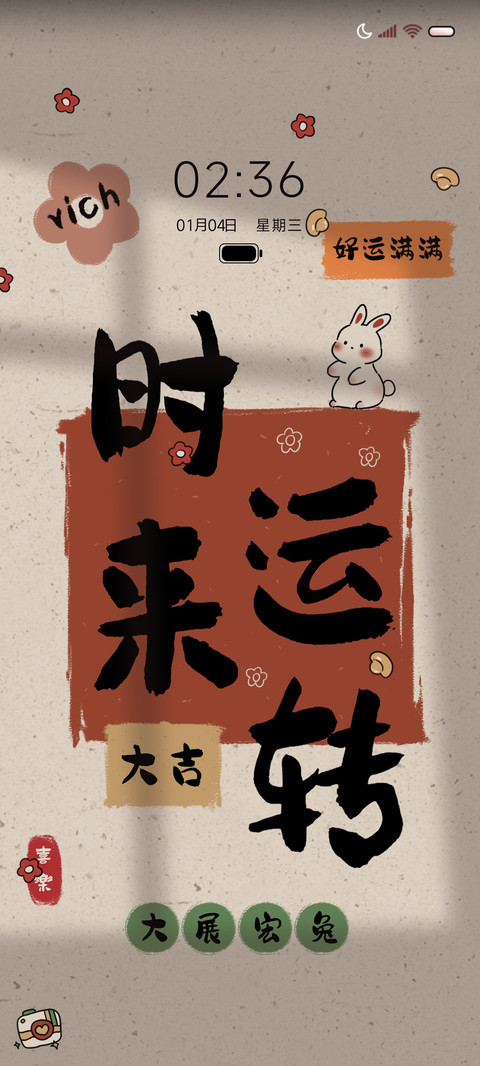 02:36
01月04日 星期三
rich
好运满满
时来
运转
大吉
喜樂
大展宏兔